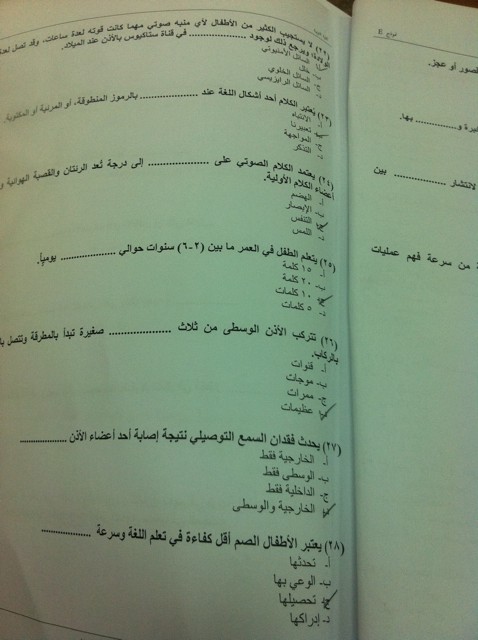 نموذج E
(٢٢) لا يستجيب الكثير من الأطفال لأي منبه صوتي مهما كانت قوته لعدة ساعات، وقد تصل لعدة
الولادة؛ ويرجع ذلك لوجود .................. في قناة ستاكيوس بالأذن عند الميلاد.
أ- السائل الأمنيوتي
ب- خلل
ج- السائل الخلوي
د- السائل الرايزيسي
(٢٣) يُعتبر الكلام أحد أشكال اللغة عند .................. بالرموز المنطوقة، أو المرئية أو المكتوبة.
أ- الانتباه
ب- تعبيرنا
ج- المواجهة
د- التذكر
(٢٤) يعتمد الكلام الصوتي على .................. إلى درجة تُعد الرئتان والقصبة الهوائية و
أعضاء الكلام الأولية.
أ- الهضم
ب- الإبصار
ج- التنفس
د- اللمس
(٢٥) يتعلم الطفل في العمر ما بين (٢-٦) سنوات حوالي .................. يومياً.
أ- ١٥ كلمة
ب- ٢٠ كلمة
ج- ١٠ كلمات
د- ٥ كلمات
(٢٦) تتركب الأذن الوسطى من ثلاث .................. صغيرة تبدأ بالمطرقة وتتصل بال
بالركاب.
أ- قنوات
ب- موجات
ج- ممرات
د- عظيمات
(٢٧) يحدث فقدان السمع التوصيلي نتيجة إصابة أحد أعضاء الأذن ..................
أ- الخارجية فقط
ب- الوسطى فقط
ج- الداخلية فقط
د- الخارجية والوسطى
(٢٨) يعتبر الأطفال الصم أقل كفاءة في تعلم اللغة وسرعة ..................
أ- تحدثها
ب- الوعي بها
ج- تحصيلها
د- إدراكها
قصور أو عجز.
يرة و.............. بها.
لانتشار .................. بين
ة من سرعة فهم عمليات